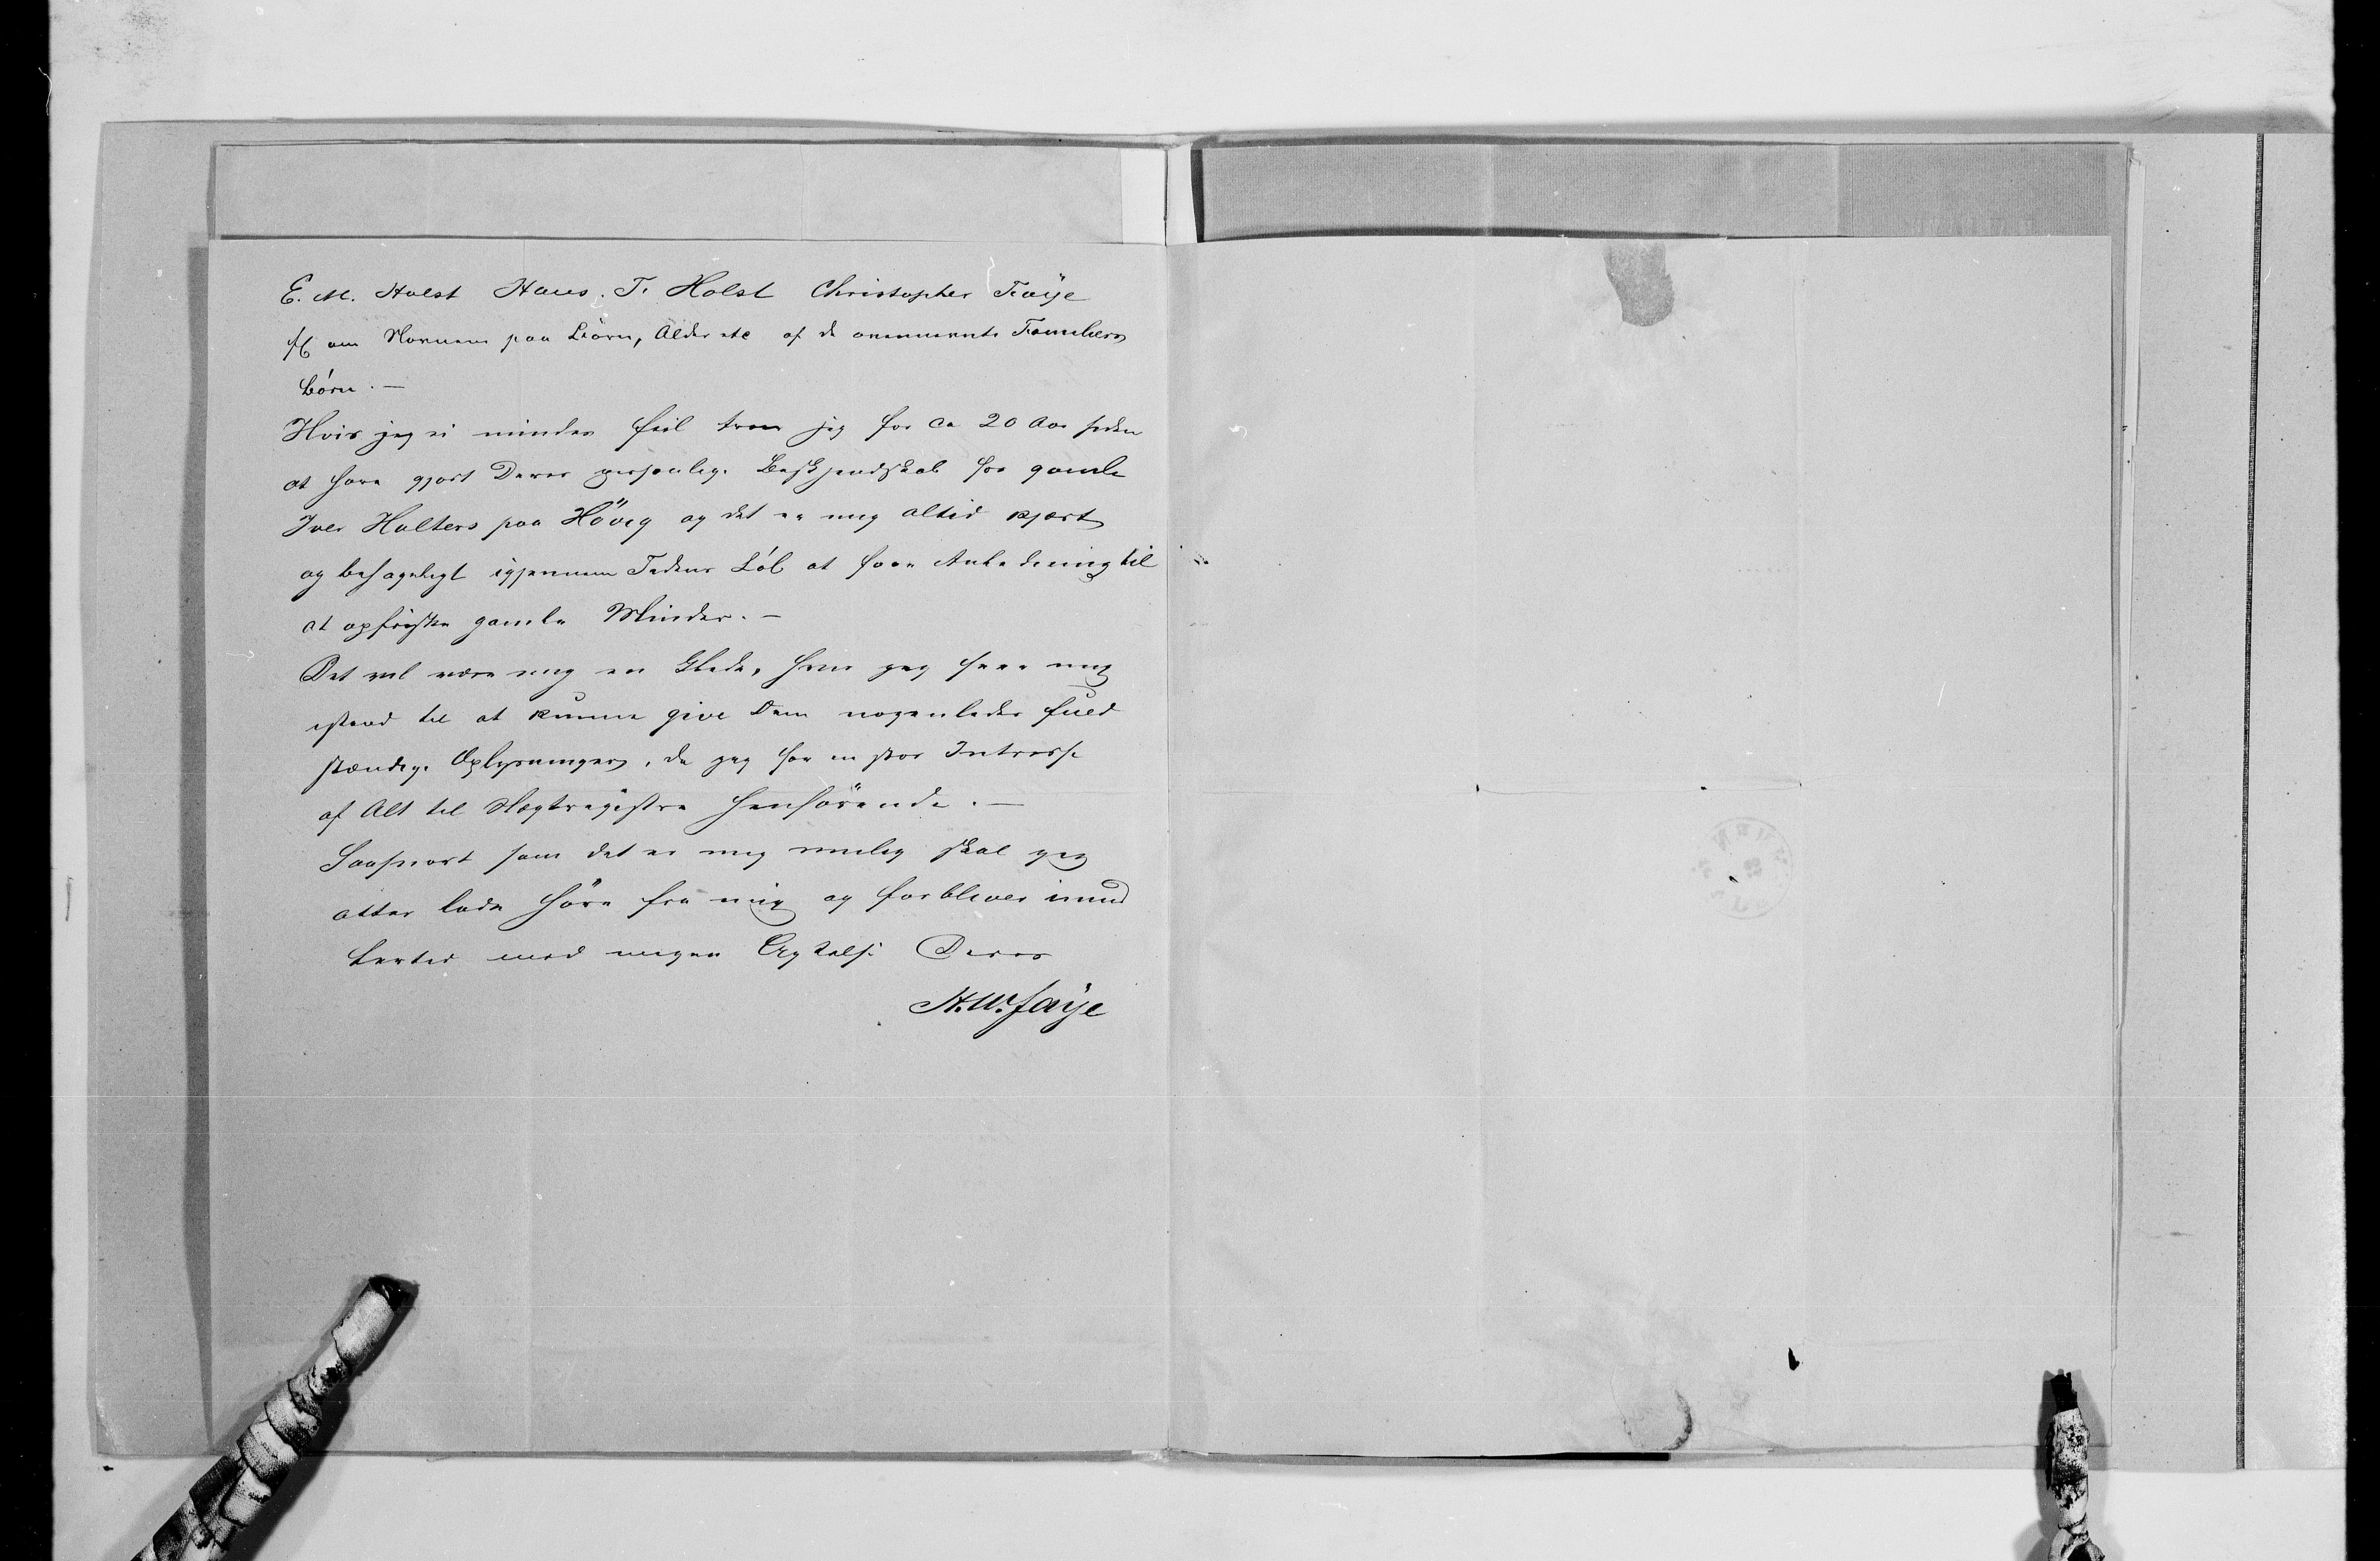 E. M. Holst Hans. T. Holst Christopher Faÿe
om Navnene paa Börn, Alder etc af de ovennævnte Familiers
Börn. —
Hvis jeg ei mindes feil troer jeg for ca 20 Aar siden
at have gjort Deres personlige Beskjendskab hos gamle
Iver Holters paa Hövig og det er mig altid kjært
og behageligt igjennem Tidens Löb at have Anledning til
at opfriske gamle Minder. —
Det vil være mig en Glæde, hvis jeg seer mig
istand til at kunne give Dem nogenledes fuld
stændige Oplysninger, da jeg har en stor Intresse
af Alt til Slegtregistre henhörende. —
Saasnart som det er mig mulig skal jeg
atter lade höre fra mig og forbliver imid
lertid med megen Agtelse Deres
H. W. Faÿe